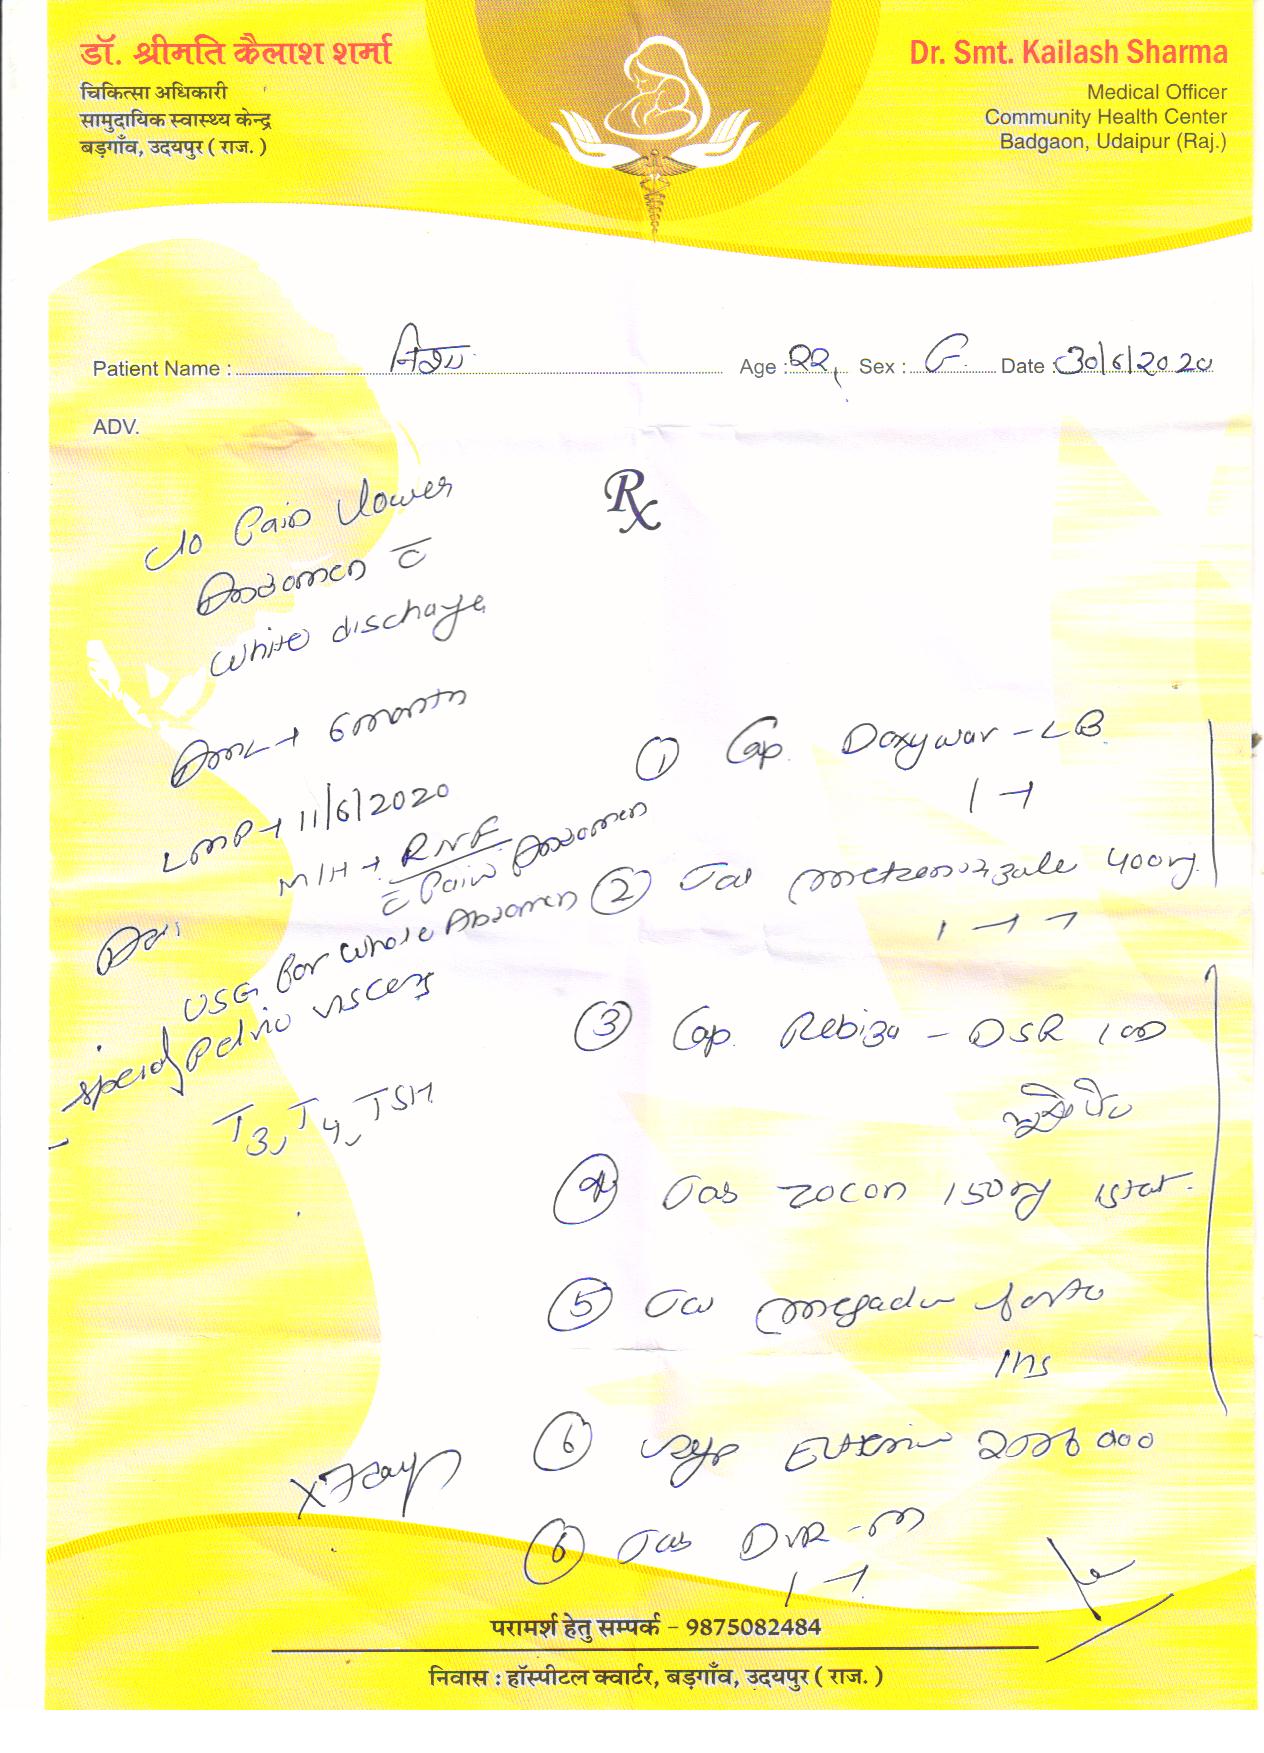 डॉ. श्रीमति कैलाश शर्मा
चिकित्सा अधिकारी
सामुदायिक स्वास्थ्य केन्द्र
बड़गाँव, उदयपुर ( राज. )
Dr. Smt. Kailash Sharma
Medical Officer
Community Health Center
Badgaon, Udaipur (Raj.)
Patient Name : Age : 22 Sex : F Date : 30/6/2020
ADV.
Rx
c/o Pain lower
Abdomen c̄
white discharge
6 month
LMP → 11/6/2020
M/H → RNF
c̄ Pain Abdomen
USG for whole Abdomen
Pelvic viscera
T3, T4, TSH
X Ray
① Cap. - LB
1 -1
② Tab metronidazole 400mg
1 -1 -1
③ Cap. Rebiza - DSR 100
④ Tab zocon 150mg 1 stat.
⑤ Tab forte
1 HS
⑥ Syp 200
⑥ Tab - M
1 -1
परामर्श हेतु सम्पर्क – 9875082484
निवास : हॉस्पीटल क्वार्टर, बड़गाँव, उदयपुर ( राज. )